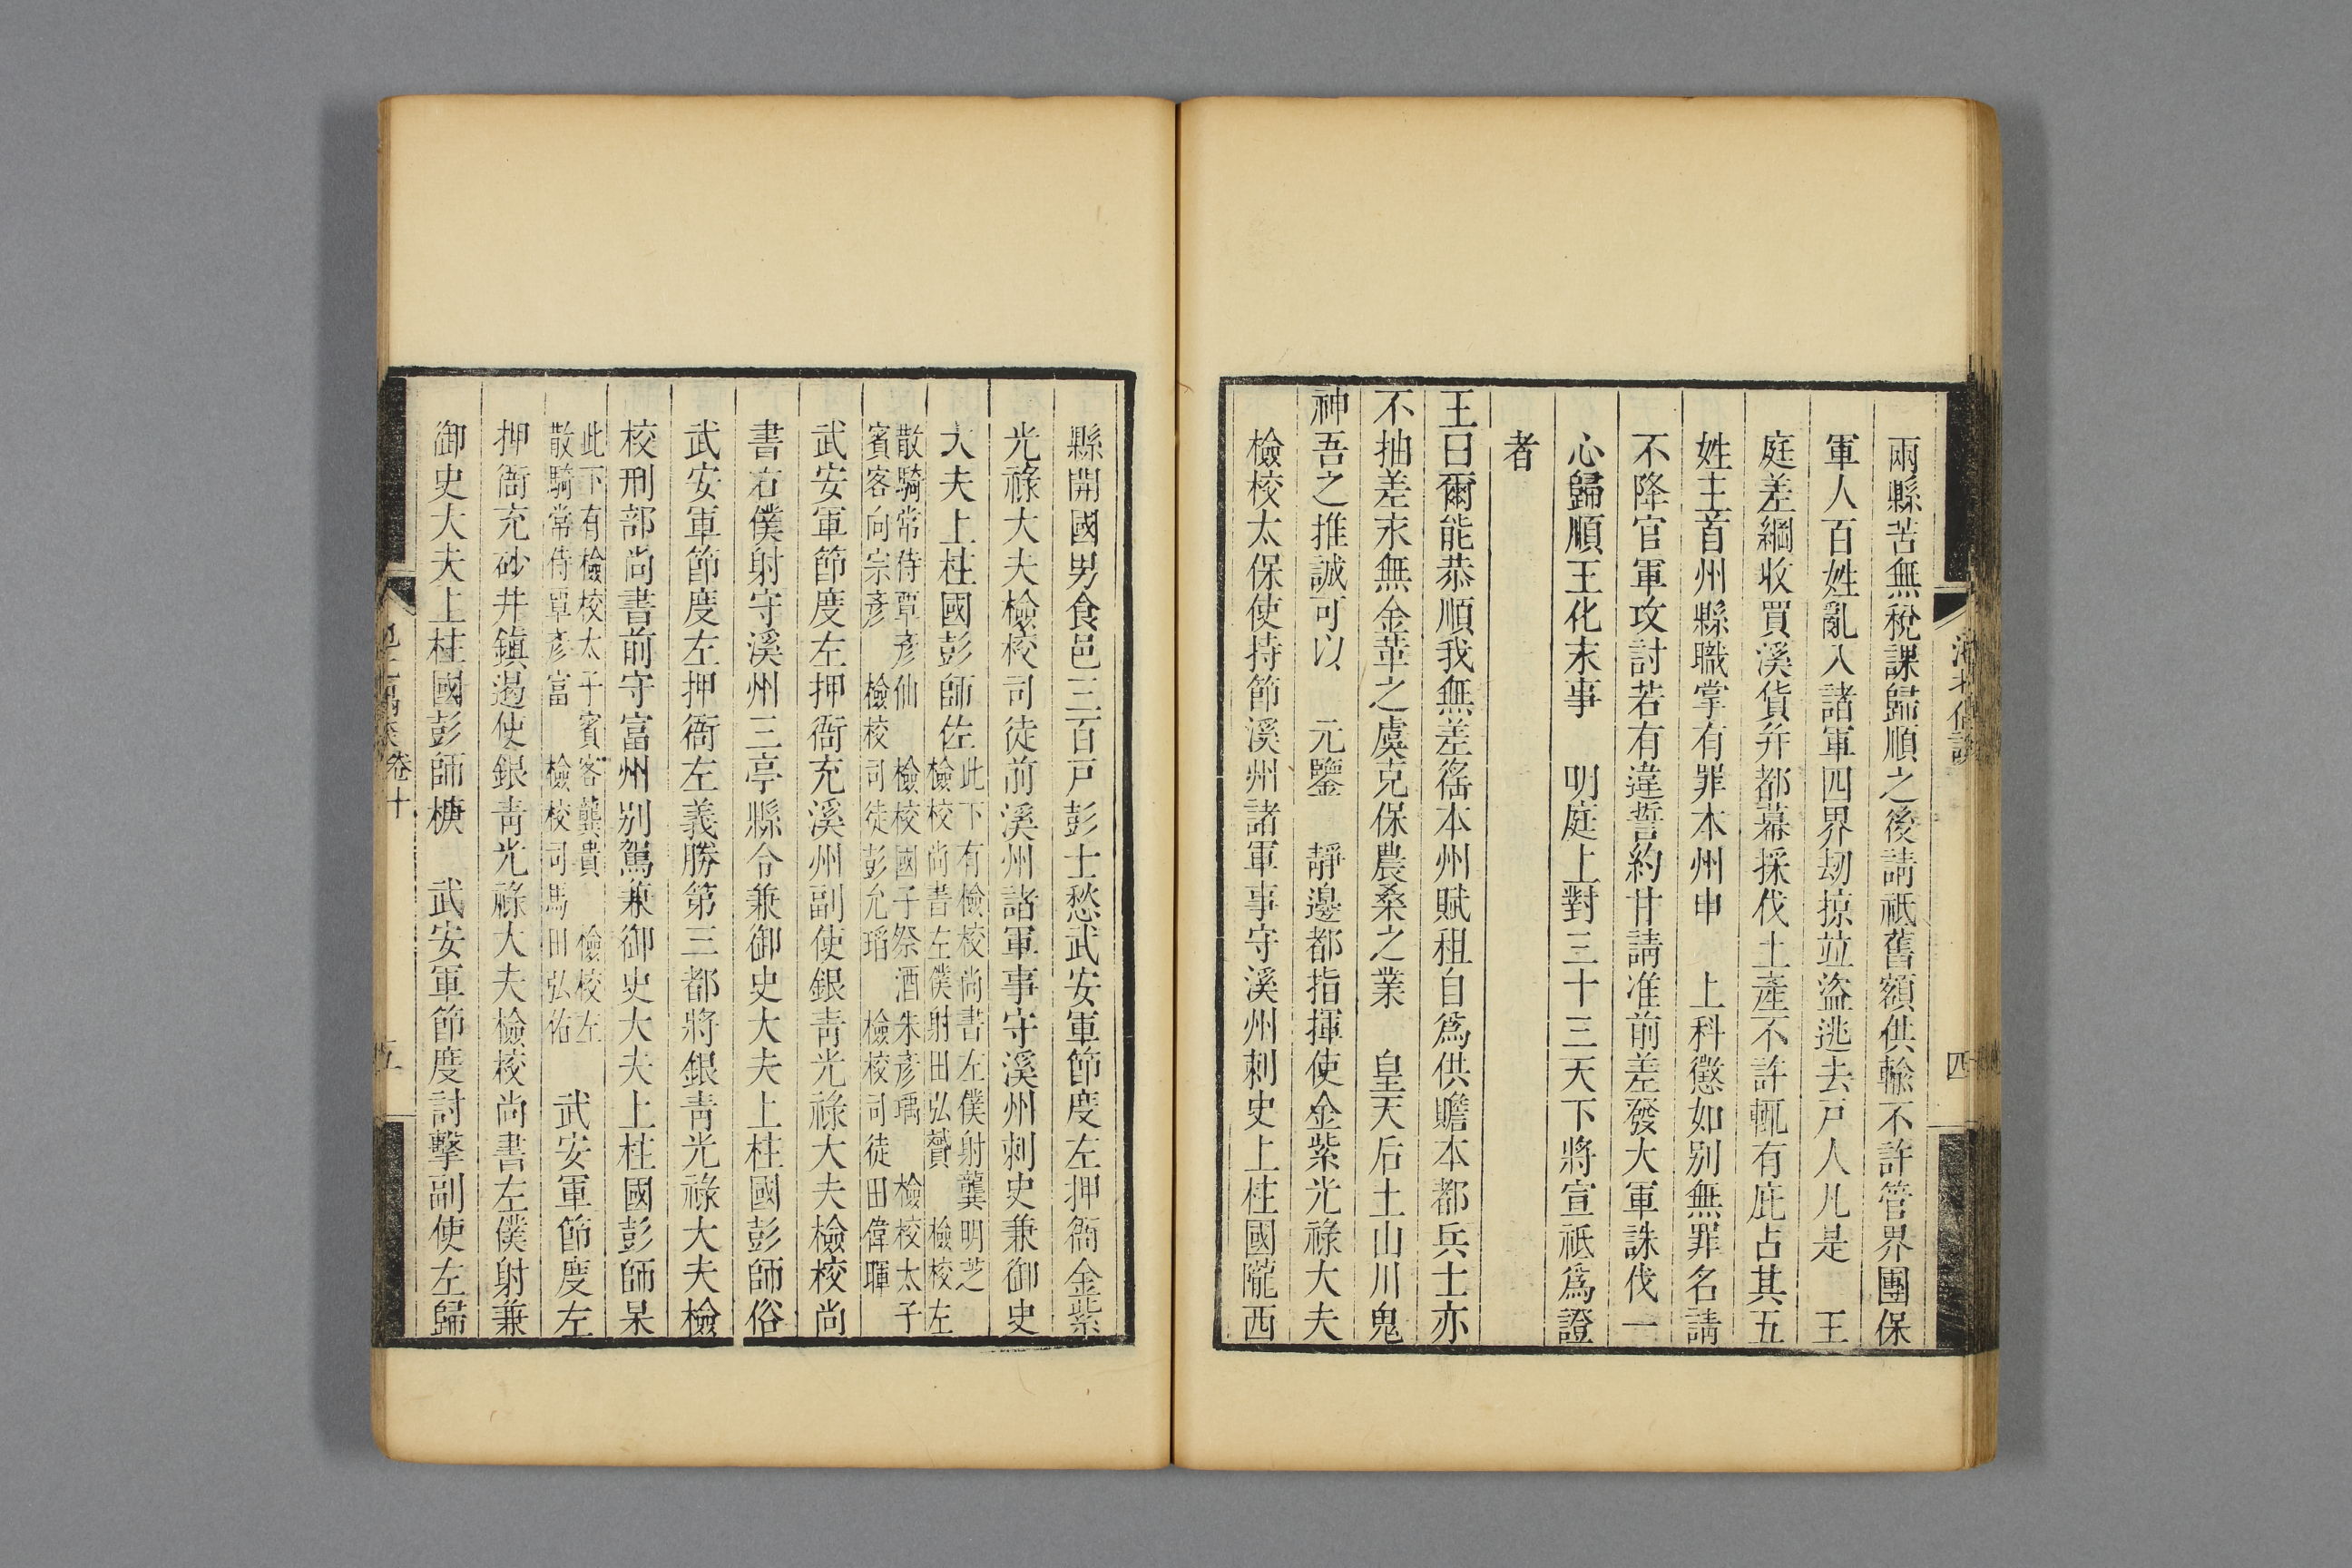 兩縣苦無稅課歸順之後請祗舊額供輸不許管界團保
軍人百姓亂入諸軍四界刼掠並盜逃去戸人凡是　王
庭差綱收買溪貨并都幕採伐土產不許輒有庇占其五
姓主首州縣職掌有罪本州申　上科懲如別無罪名請
不降官軍攻討若有違誓約甘請准前差發大軍誅伐一
心歸順王化末事　明庭上對三十三天下將宣祗爲證
者
王曰爾能恭順我無差徭本州賦租自爲供贍本都兵士亦
不抽差永無金革之虞克保農桑之業　皇天后土山川鬼
神吾之推誠可以　元鑒　靜邊都指揮使金紫光祿大夫
檢校太保使持節溪州諸軍事守溪州刺史上柱國隴西
四
縣開國男食邑三百戸彭士愁武安軍節度左押衙金紫
光祿大夫檢校司徒前溪州諸軍事守溪州刺史兼御史
大夫上柱國彭師佐
此下有檢校尚書左僕射龔明芝
檢校尚書左僕射田弘贇　檢校左
散騎常侍覃彥仙　檢校國子祭酒朱彥瑀　檢校太子
賓客向宗彥　檢校司徒彭允瑫　檢校司徒田偉暉
武安軍節度左押衙充溪州副使銀靑光祿大夫檢校尚
書右僕射守溪州三亭縣令兼御史大夫上柱國彭師俗
武安軍節度左押衙左義勝第三都將銀靑光祿大夫檢
校刑部尚書前守富州別駕兼御史大夫上柱國彭師杲
此下有檢校太子賓客龔貴　檢校左
散騎常侍覃彥富　檢校司馬田弘祐
武安軍節度左
押衙充砂井鎭遏使銀靑光祿大夫檢校尚書左僕射兼
御史大夫上柱國彭師㮾　武安軍節度討擊副使左歸
卷十
五